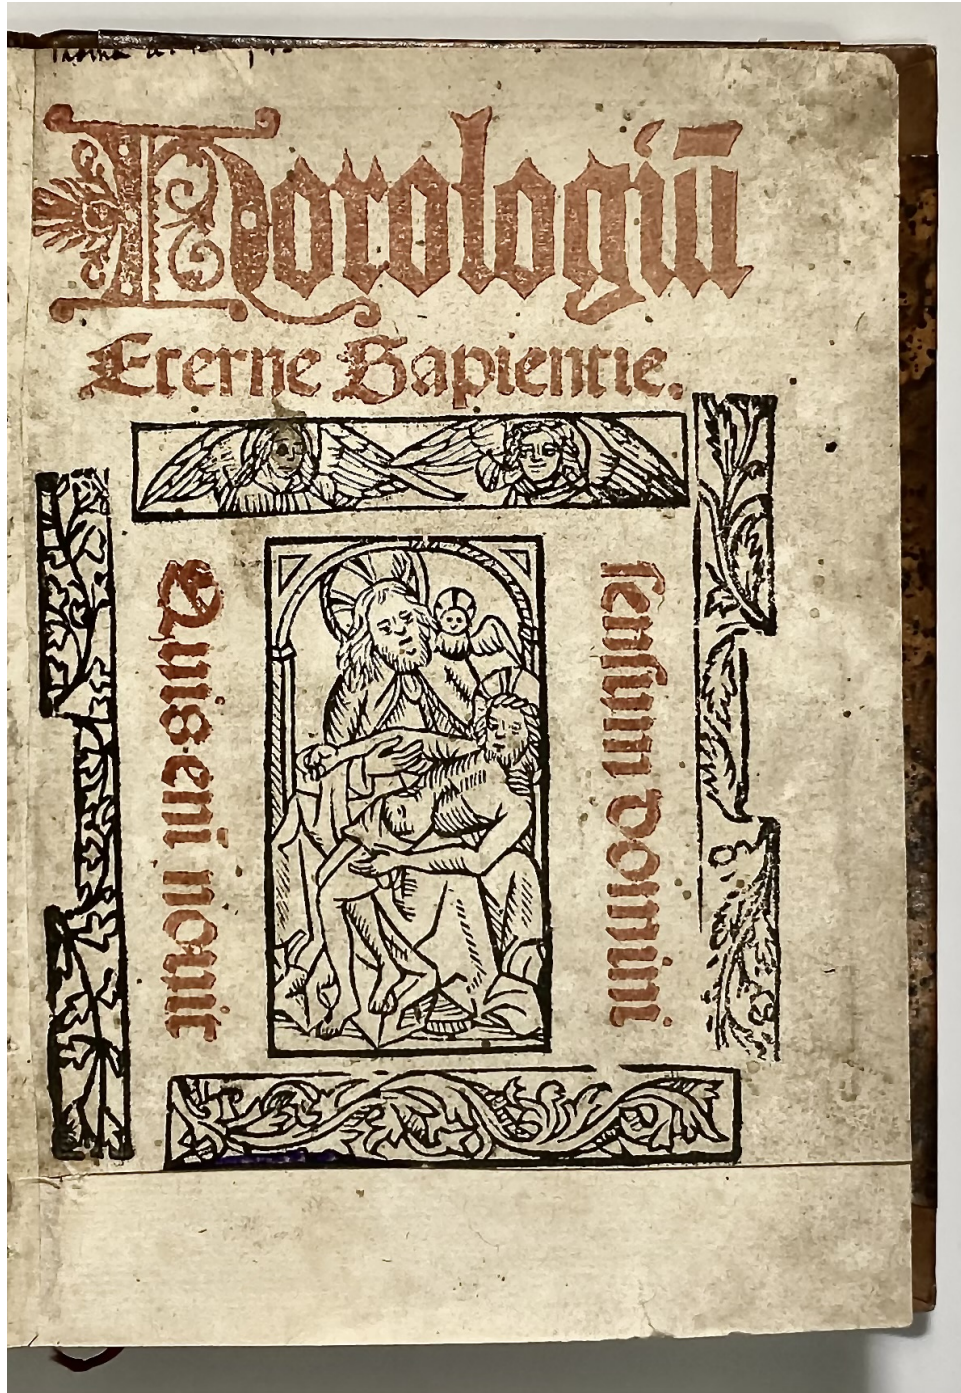 Horologiū
Eterne Sapientie.
Quis·eni nouit
sensum domini